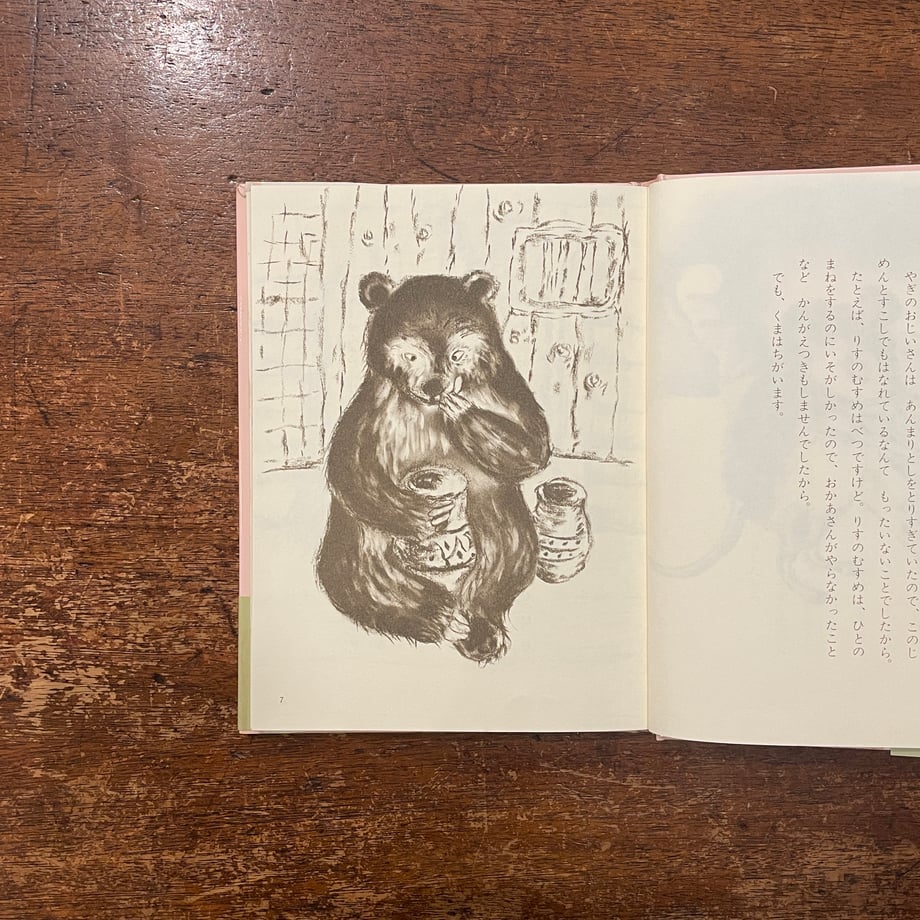 やぎのおじいさんは　あんまりとしをとりすぎていたので、このじ
めんとすこしでもはなれているなんて　もったいないことでしたから。
たとえば、りすのむすめはべつですけど。りすのむすめは、ひとの
まねをするのにいそがしかったので、おかあさんがやらなかったこと
など　かんがえつきもしませんでしたから。
でも、くまはちがいます。
7